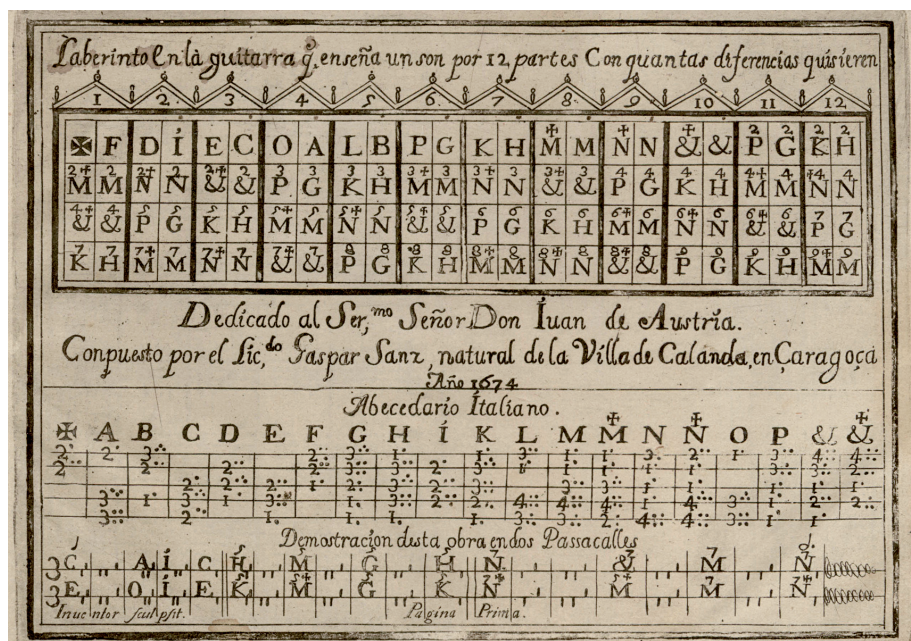 Laberinto En la guitarra q̃. enseña un son por 12 partes Con quantas diferencias quisieren
1 2 3 4 5 6 7 8 9 10 11 12
✠ F D Í E C O A L B P G K H M✠ M N✠ N &✠ & P2 G2 K2 H2
M2✠ M2 N2✠ N2 &2✠ &2 P3 G3 K3 H3 M3✠ M3 N3✠ N3 &3✠ &3 P4 G4 K4 H4 M4✠ M4 N4✠ N4
&4✠ &4 P5 G5 K5 H5 M5✠ M5 N5✠ N5 &5✠ &5 P6 G6 K6 H6 M6✠ M6 N6✠ N6 &6✠ &6 P7 G7
K7 H7 M7✠ M7 N7✠ N7 &7✠ &7 P8 G8 K8 H8 M8✠ M8 N8✠ N8 &8✠ &8 P9 G9 K9 H9 M9✠ M9
Dedicado al Ser,mo Señor Don Íuan de Austria.
Conpuesto por el Lic,do Gaspar Sanz, natural de la Villa de Calanda, en Çaragoça
Año 1674
Abecedario Ítaliano.
✠ A B C D E F G H Í K L M M✠ N N✠ O P & &✠
Demostracion desta obra en dos Passacalles
Inuentor sculpsit. Pagina Prima.